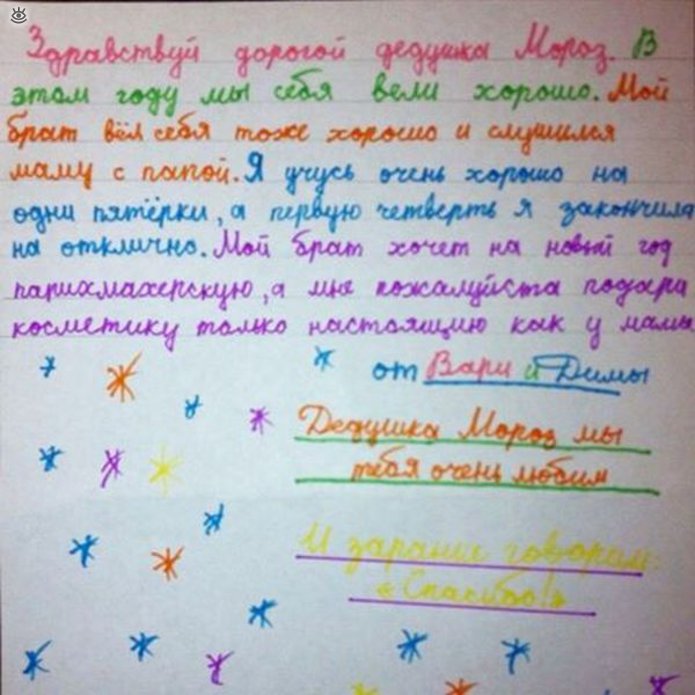 Здравствуй дорогой дедушка Мороз. В
этом году мы себя вели хорошо. Мой
брат вёл себя тоже хорошо и слушился
маму с папой. Я учусь очень хорошо на
одни пятёрки, а первую четверть я закончила
на отклично. Мой брат хочет на новый год
парихмахерскую, а мне пожалуйста подари
косметику только настоящию как у мамы
от Вари и Димы
Дедушка Мороз мы
тебя очень любим
И зарание говорим:
«Спасибо!»